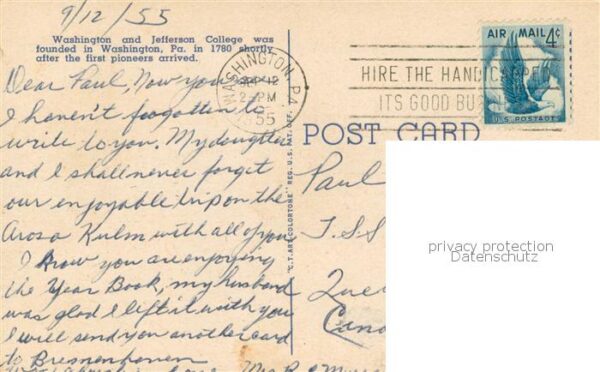 9/12/55
Washington and Jefferson College was
founded in Washington, Pa. in 1780 shortly
after the first pioneers arrived.
Dear Paul, Now you see
I haven't forgotten to
write to you. My daughter
and I shall never forget
our enjoyable trip on the
Arosa Kulm with all of you
I know you are enjoying
the Year Book, my husband
was glad I left it with you
I will send you another card
to Bremenhaven
love Mrs R
WASHINGTON, PA.
SEP 12
2 PM
55
HIRE THE HANDICAPPED
ITS GOOD BU
AIR MAIL 4¢
U.S. POSTAGE
POST CARD
"C.T. ART-COLORTONE" REG. U.S. PAT. OFF.
Paul
T.S.S
Que
Cana
privacy protection
Datenschutz